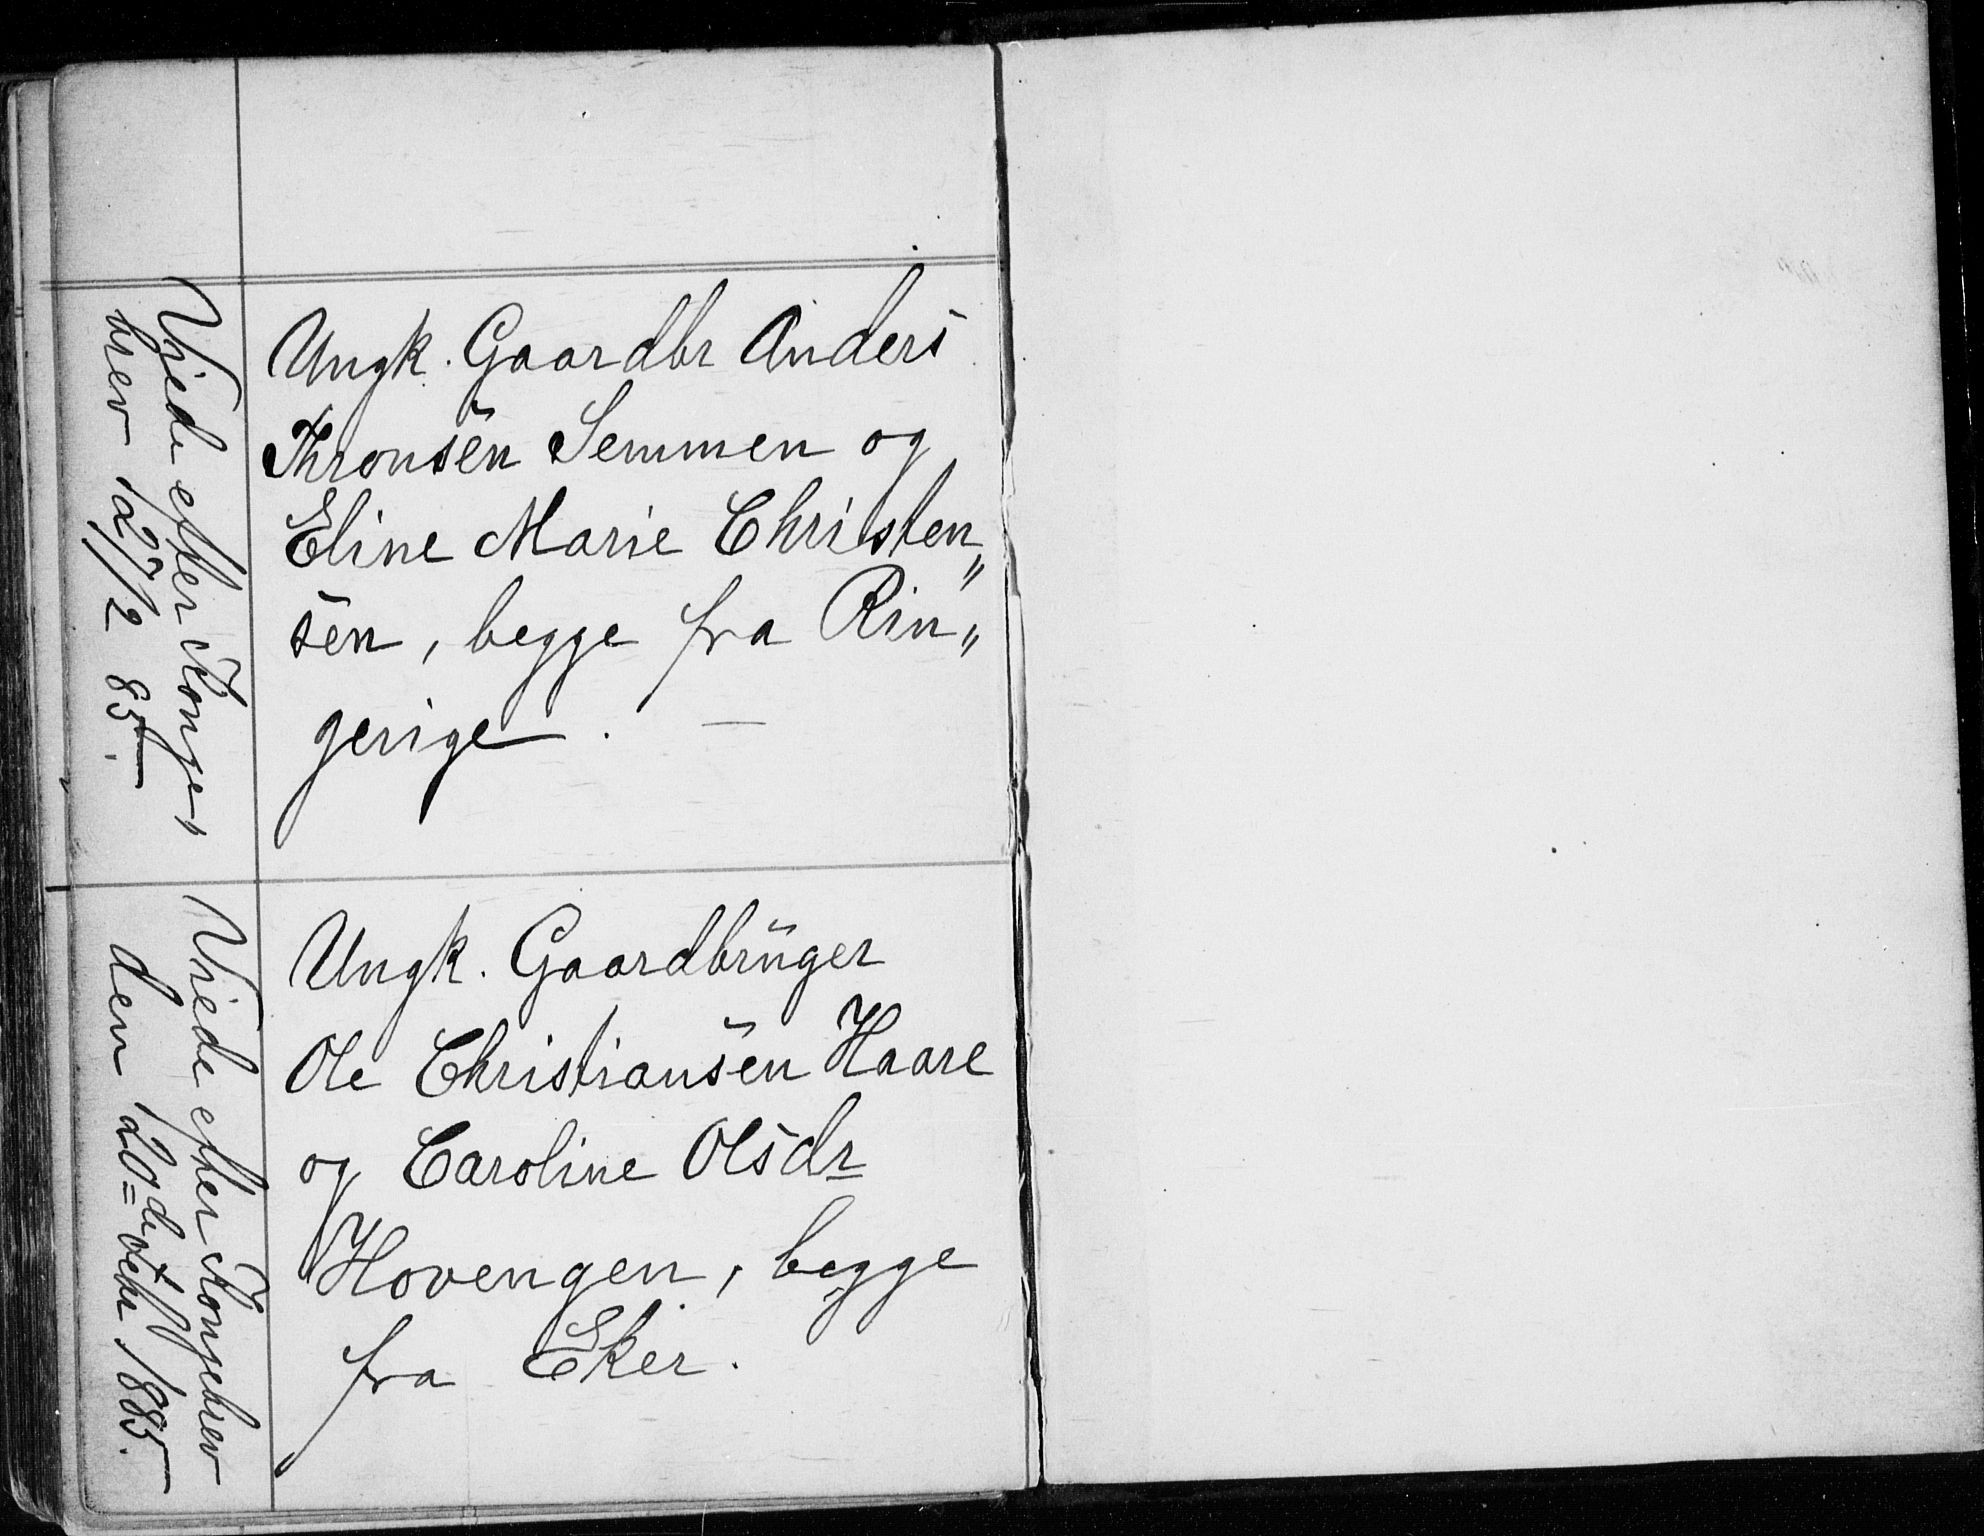 Viede efter Konge,
brev 27/2 85.
Ungk. Gaardbr Anders
Thronsen Semmen og
Eline Marie Christen„
sen, begge fra Rin„
gerige. —
Viede efter Kongebrev
den 20de Octbr 1885.
Ungk. Gaardbruger
Ole Christiansen Haare
og Caroline Olsdr
Hovengen, begge
fra Eker.